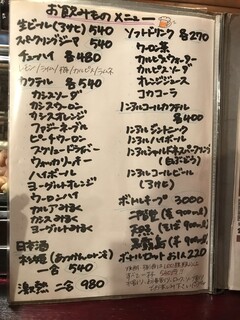 お飲みものメニュー
生ビール(アサヒ) 540
スパークリングジーマ 540
チューハイ 各480
カクテル 各540
カシスソーダ
カシスウーロン
カシスオレンジ
ファジーネーブル
ピーチウーロン
スクリュードライバー
ウォッカソーダー
ハイボール
ヨーグルトオレンジ
ウーロンハイ
カルアみるく
カシスみるく
ヨーグルトみるく
日本酒
一合 540
激熱 二合 980
ソフトドリンク 各270
ウーロン茶
カルピスウォーター
カルピスソーダ
オレンジジュース
コカコーラ
ノンアルコールカクテル
各400
ノンアルジントニック
ノンアルハイボール
ノンアルコールビール
(アサヒ)
ボトルキープ 3000
二階堂 (麦 900ml)
(そば 900ml)
黒霧島 (芋 900ml)
ボトルセット お1人220